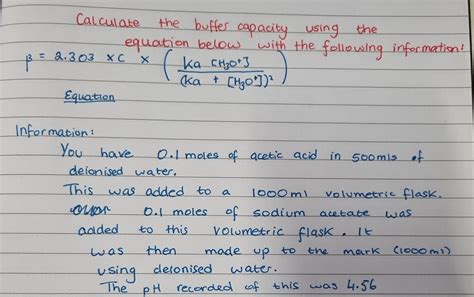 Calculate the buffer capacity using the
equation below with the following information!
β = 2.303 × C × ( Ka [H3O+] / (Ka + [H3O+])² )
Equation
Information:
You have 0.1 moles of acetic acid in 500mls of
deionised water.
This was added to a 1000ml volumetric flask.
0.1 moles of sodium acetate was
added to this volumetric flask. It
was then made up to the mark (1000ml)
using deionised water.
The pH recorded of this was 4.56